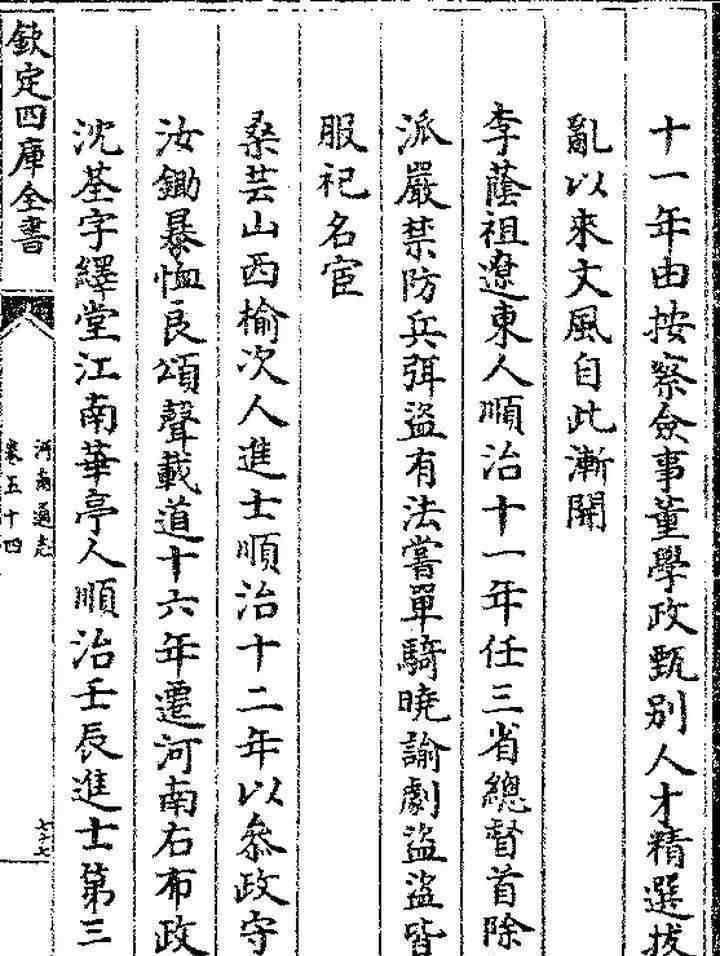 十一年由按察僉事董學政甄別人才精選拔
亂以來文風自此漸開
李蔭祖遼東人順治十一年任三省總督首除
派嚴禁防兵弭盜有法嘗單騎曉諭劇盜盜皆
服祀名宦
桑芸山西榆次人進士順治十二年以叅政守
汝鋤暴恤良頌聲載道十六年遷河南右布政
沈荃字繹堂江南華亭人順治壬辰進士第三
欽定四庫全書
河南通志
卷五十四
七十七